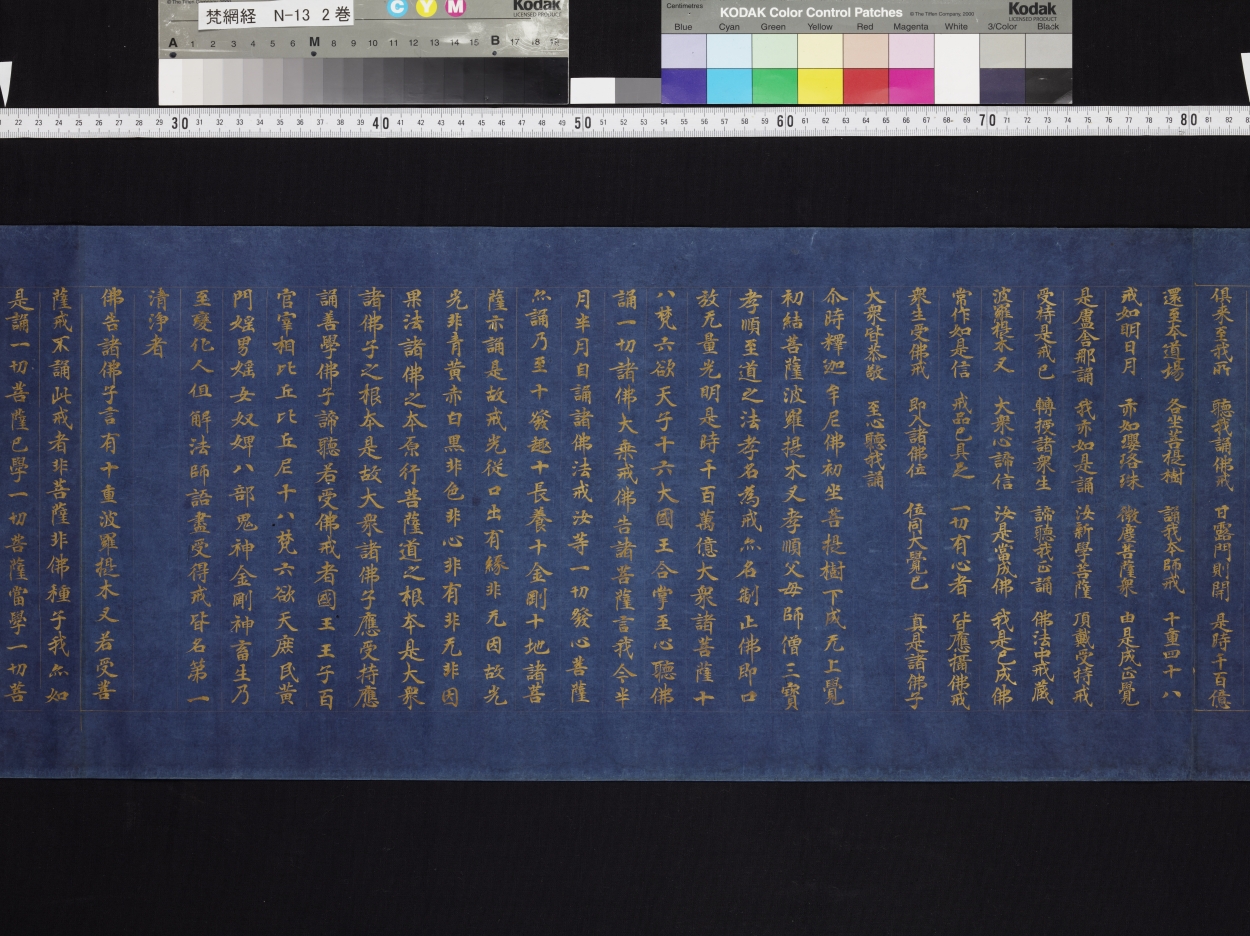 梵網経 N-13 2巻
C Y M
Kodak
LICENSED PRODUCT
A 1 2 3 4 5 6 M 8 9 10 11 12 13 14 15 B 17 18 19
Centimetres
KODAK Color Control Patches
© The Tiffen Company, 2000
Kodak
LICENSED PRODUCT
Blue Cyan Green Yellow Red Magenta White 3/Color Black
22 23 24 25 26 27 28 29 30 31 32 33 34 35 36 37 38 39 40 41 42 43 44 45 46 47 48 49 50 51 52 53 54 55 56 57 58 59 60 61 62 63 64 65 66 67 68 69 70 71 72 73 74 75 76 77 78 79 80 81 82
俱来至我所 聽我誦佛戒 甘露門則開 是時千百億
還至本道場 各坐菩提樹 誦我本師戒 十重四十八
戒如明日月 亦如瓔珞珠 微塵菩薩衆 由是成正覺
是盧舍那誦 我亦如是誦 汝新學菩薩 頂戴受持戒
受持是戒已 轉授諸衆生 諦聽我正誦 佛法中戒藏
波羅提木叉 大衆心諦信 汝是當成佛 我是已成佛
常作如是信 戒品已具足 一切有心者 皆應攝佛戒
衆生受佛戒 即入諸佛位 位同大覺已 真是諸佛子
大衆皆恭敬 至心聽我誦
尒時釋迦牟尼佛初坐菩提樹下成无上覺
初結菩薩波羅提木叉孝順父母師僧三寶
孝順至道之法孝名為戒尒名制止佛即口
放无量光明是時千百萬億大衆諸菩薩十
八梵六欲天子十六大國王合掌至心聽佛
誦一切諸佛大乗戒佛告諸菩薩言我今半
月半月自誦諸佛法戒汝等一切發心菩薩
尒誦乃至十發趣十長養十金剛十地諸菩
薩亦誦是故戒光従口出有緣非无因故光
光非青黄赤白黒非色非心非有非无非因
果法諸佛之本原行菩薩道之根本是大衆
諸佛子之根本是故大衆諸佛子應受持應
誦善學佛子諦聽若受佛戒者國王王子百
官宰相比丘比丘尼十八梵六欲天庶民黄
門婬男婬女奴婢八部鬼神金剛神畜生乃
至變化人但解法師語盡受得戒皆名第一
清淨者
佛告諸佛子言有十重波羅提木叉若受菩
薩戒不誦此戒者非菩薩非佛種子我尒如
是誦一切菩薩已學一切菩薩當學一切菩